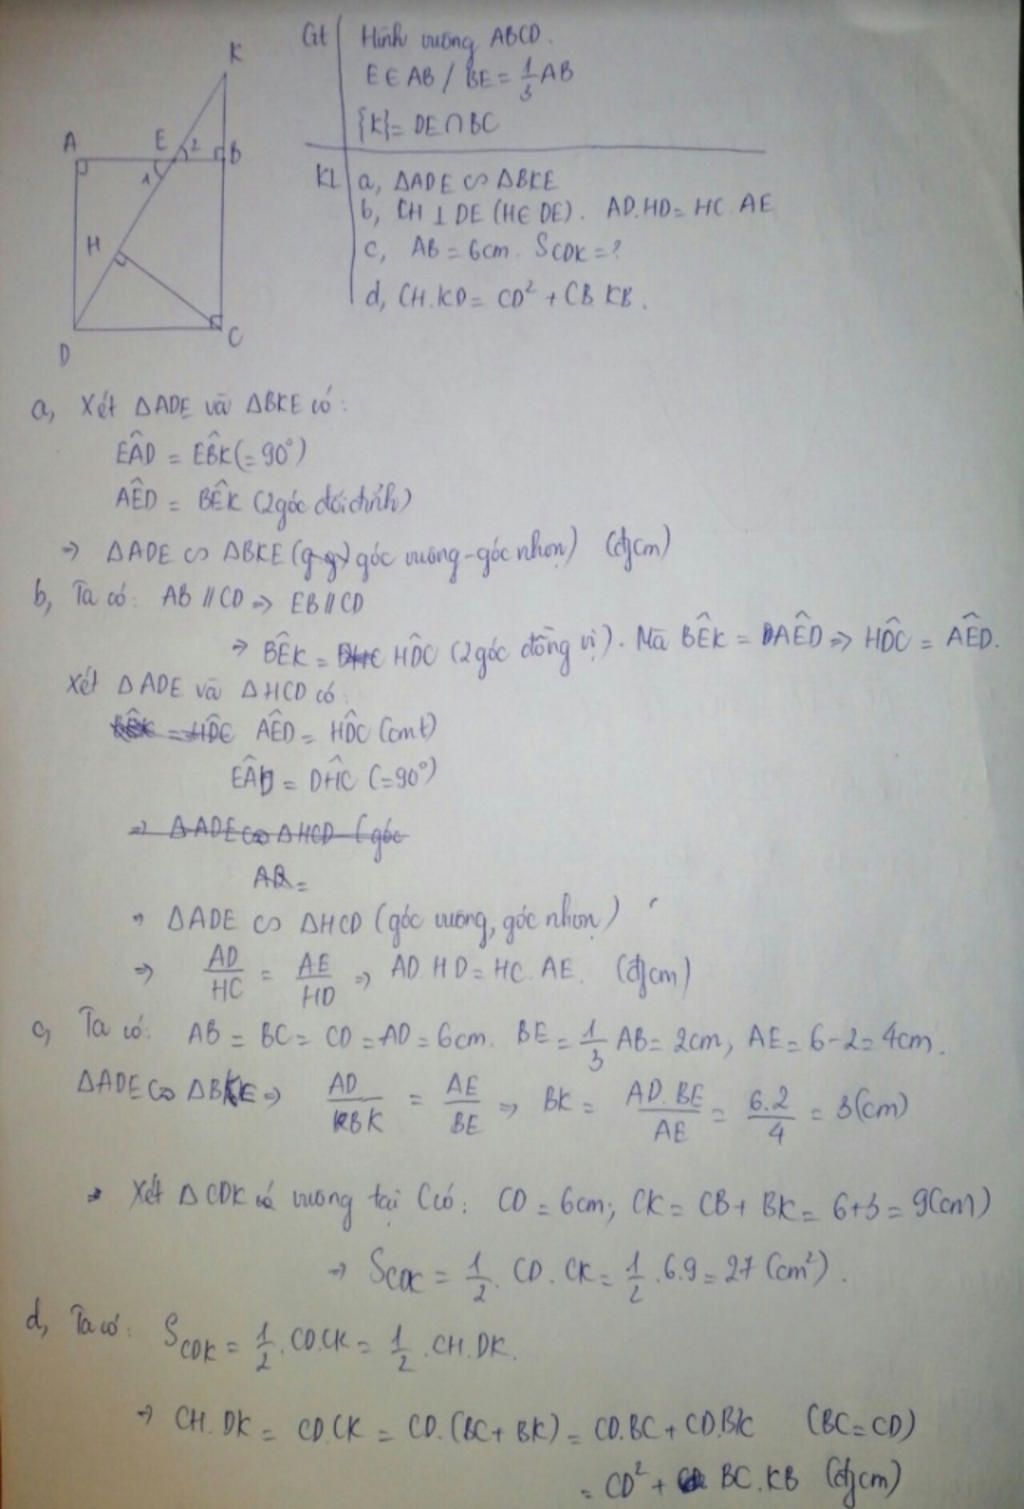 K
A
E
2
B
1
H
D
C
Gt | Hình vuông ABCD.
E ∈ AB / BE = 1/3 AB
{K} = DE ∩ BC
KL | a, ΔADE ∽ ΔBKE
b, CH ⊥ DE (H ∈ DE). AD.HD = HC.AE
c, AB = 6cm. S_CDK = ?
d, CH.KD = CD² + CB.KB.
a, Xét ΔADE và ΔBKE có:
EÂD = EB̂K (= 90°)
AÊD = BÊK (2 góc đối đỉnh)
⇒ ΔADE ∽ ΔBKE (g-g) góc vuông - góc nhọn) (đpcm)
b, Ta có: AB // CD ⇒ EB // CD
⇒ BÊK = HD̂C (2 góc đồng vị). Mà BÊK = AÊD ⇒ HD̂C = AÊD.
Xét ΔADE và ΔHCD có:
AÊD = HD̂C (cmt)
EÂD = DĤC (= 90°)
⇒ ΔADE ∽ ΔHCD (góc
⇒ ΔADE ∽ ΔHCD (góc vuông, góc nhọn)
⇒ AD/HC = AE/HD ⇒ AD.HD = HC.AE. (đpcm)
c, Ta có: AB = BC = CD = AD = 6cm. BE = 1/3 AB = 2cm, AE = 6 - 2 = 4cm.
ΔADE ∽ ΔBKE ⇒ AD/BK = AE/BE ⇒ BK = AD.BE/AE = 6.2/4 = 3(cm)
⇒ Xét ΔCDK vuông tại C có: CD = 6cm; CK = CB + BK = 6 + 3 = 9(cm)
⇒ S_CDK = 1/2 . CD . CK = 1/2 . 6.9 = 27 (cm²).
d, Ta có: S_CDK = 1/2 . CD.CK = 1/2 . CH.DK.
⇒ CH.DK = CD.CK = CD.(BC + BK) = CD.BC + CD.BK (BC = CD)
= CD² + BC.KB (đpcm)